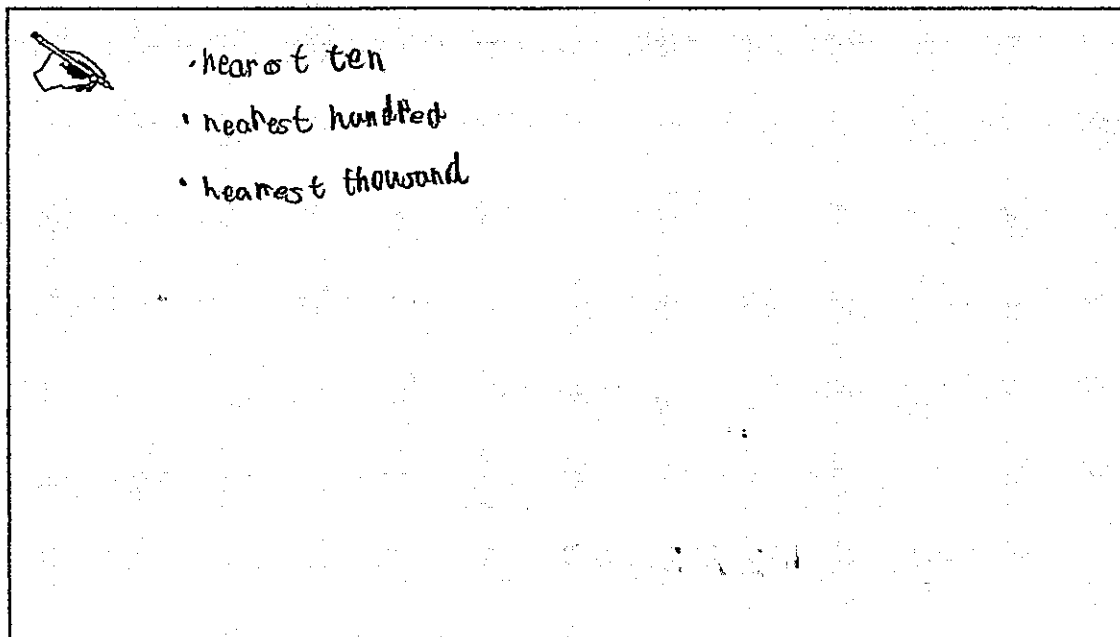 · nearest ten
· nearest hundred
· nearest thousand